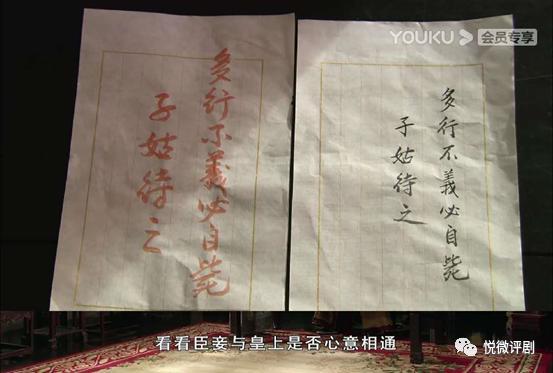 YOUKU 会员专享
多行不義必自毙
子姑待之
多行不義必自毙
子姑待之
看看臣妾与皇上是否心意相通
悦微评剧